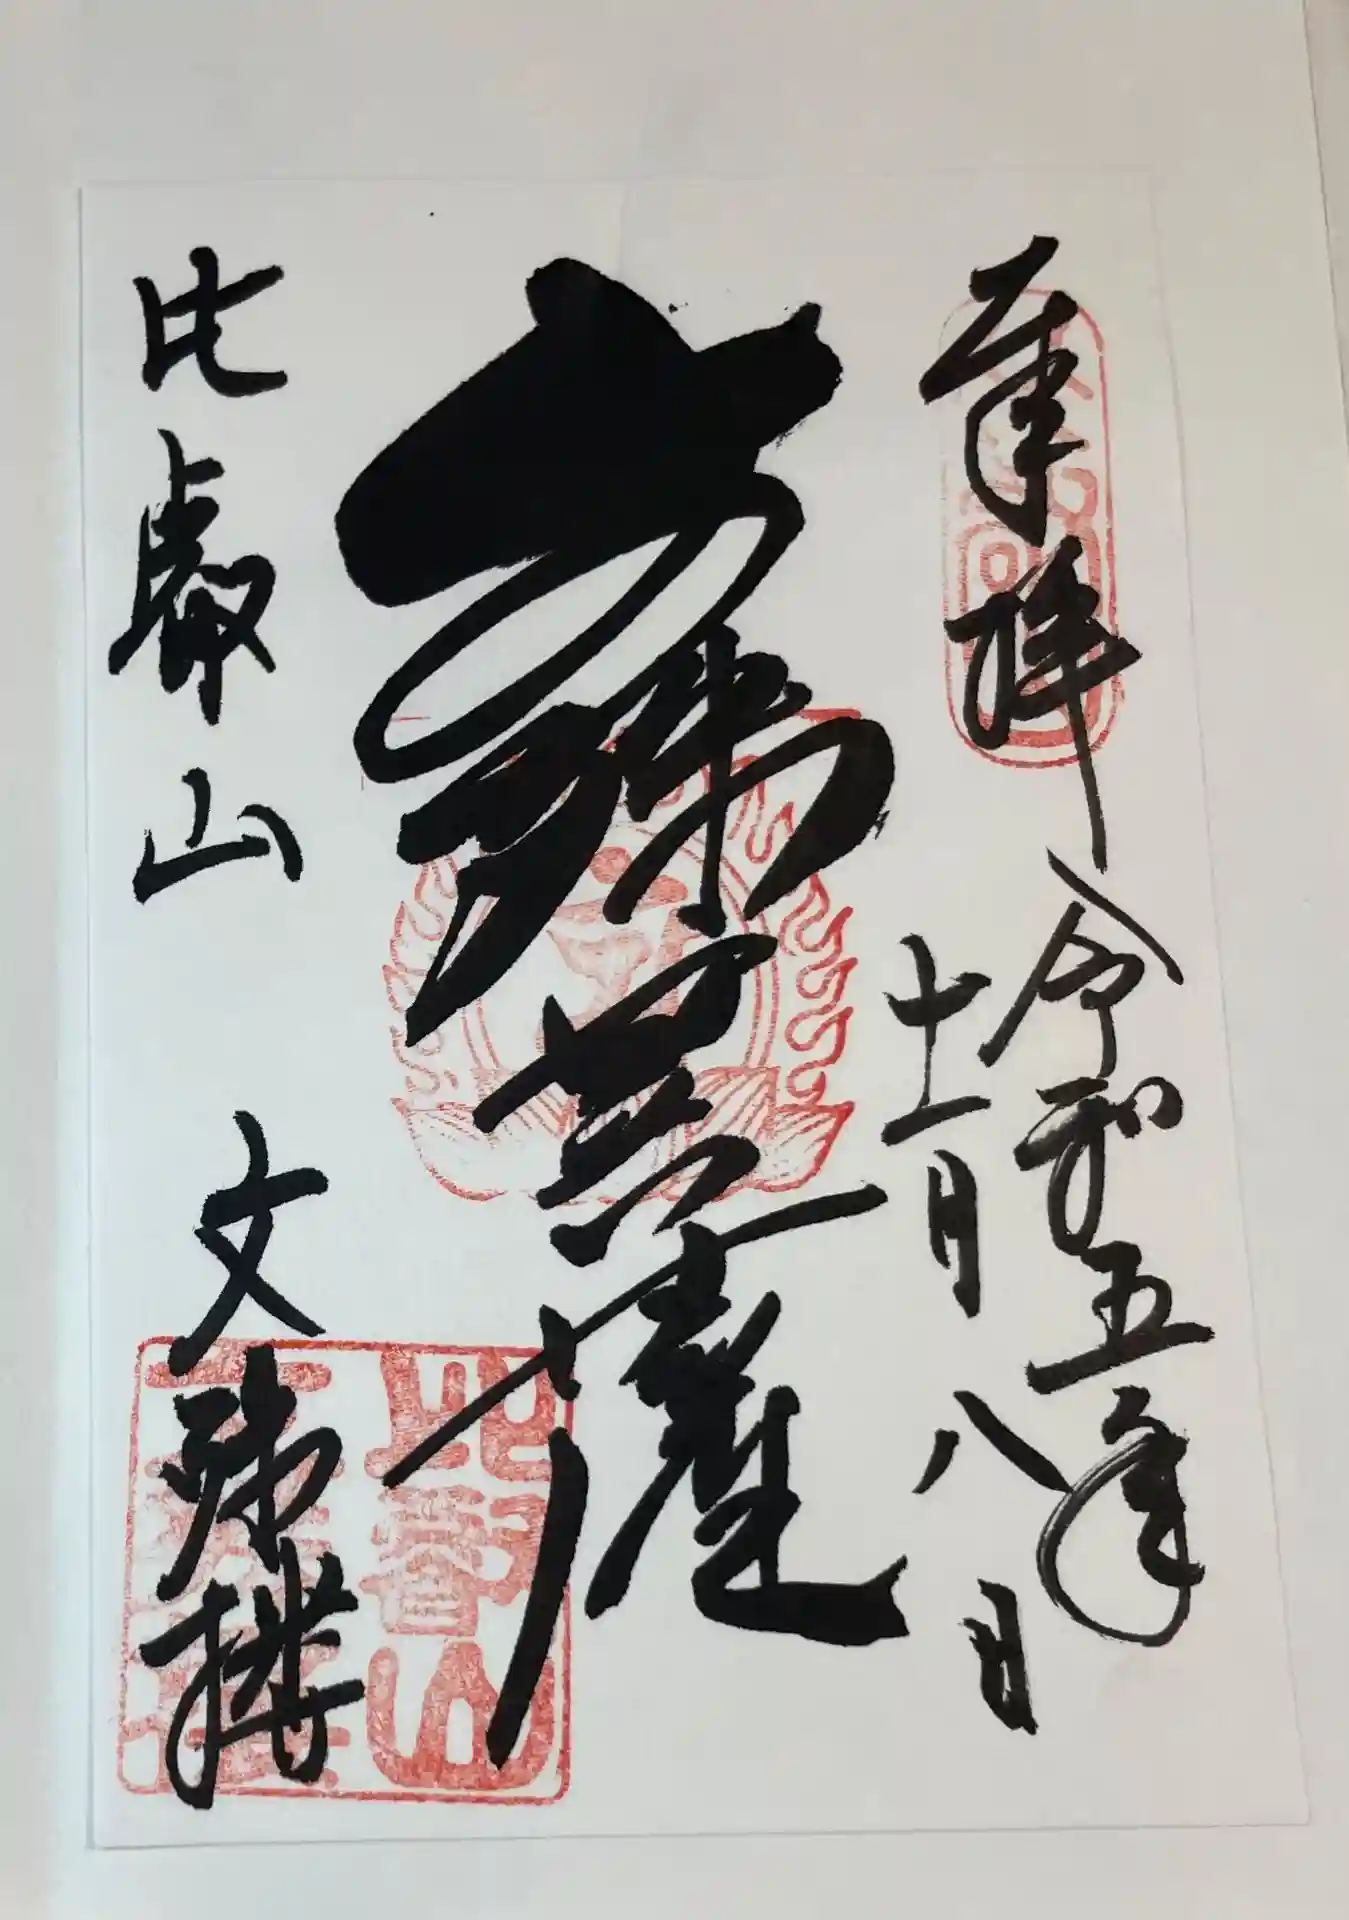 奉拝
令和五年
十一月八日
文殊菩薩
比叡山 文殊樓